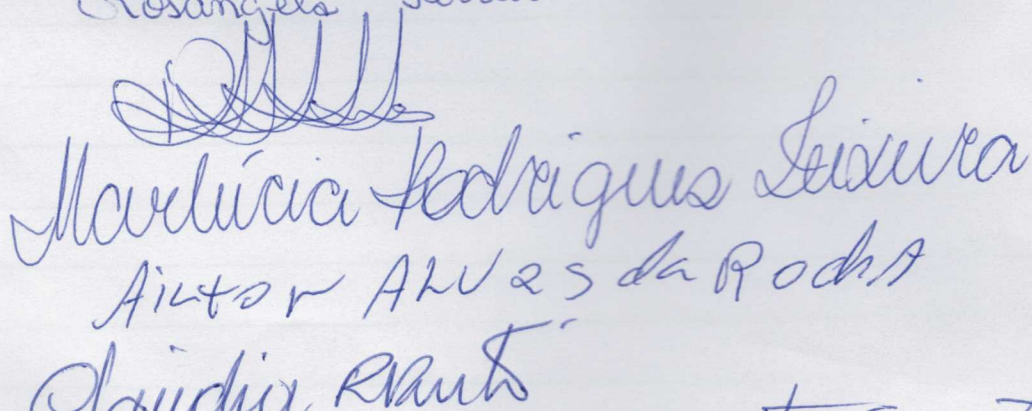 Rosangela
Marlúcia Rodrigues Teixeira
Ailton ALVES da RochA
Claudia